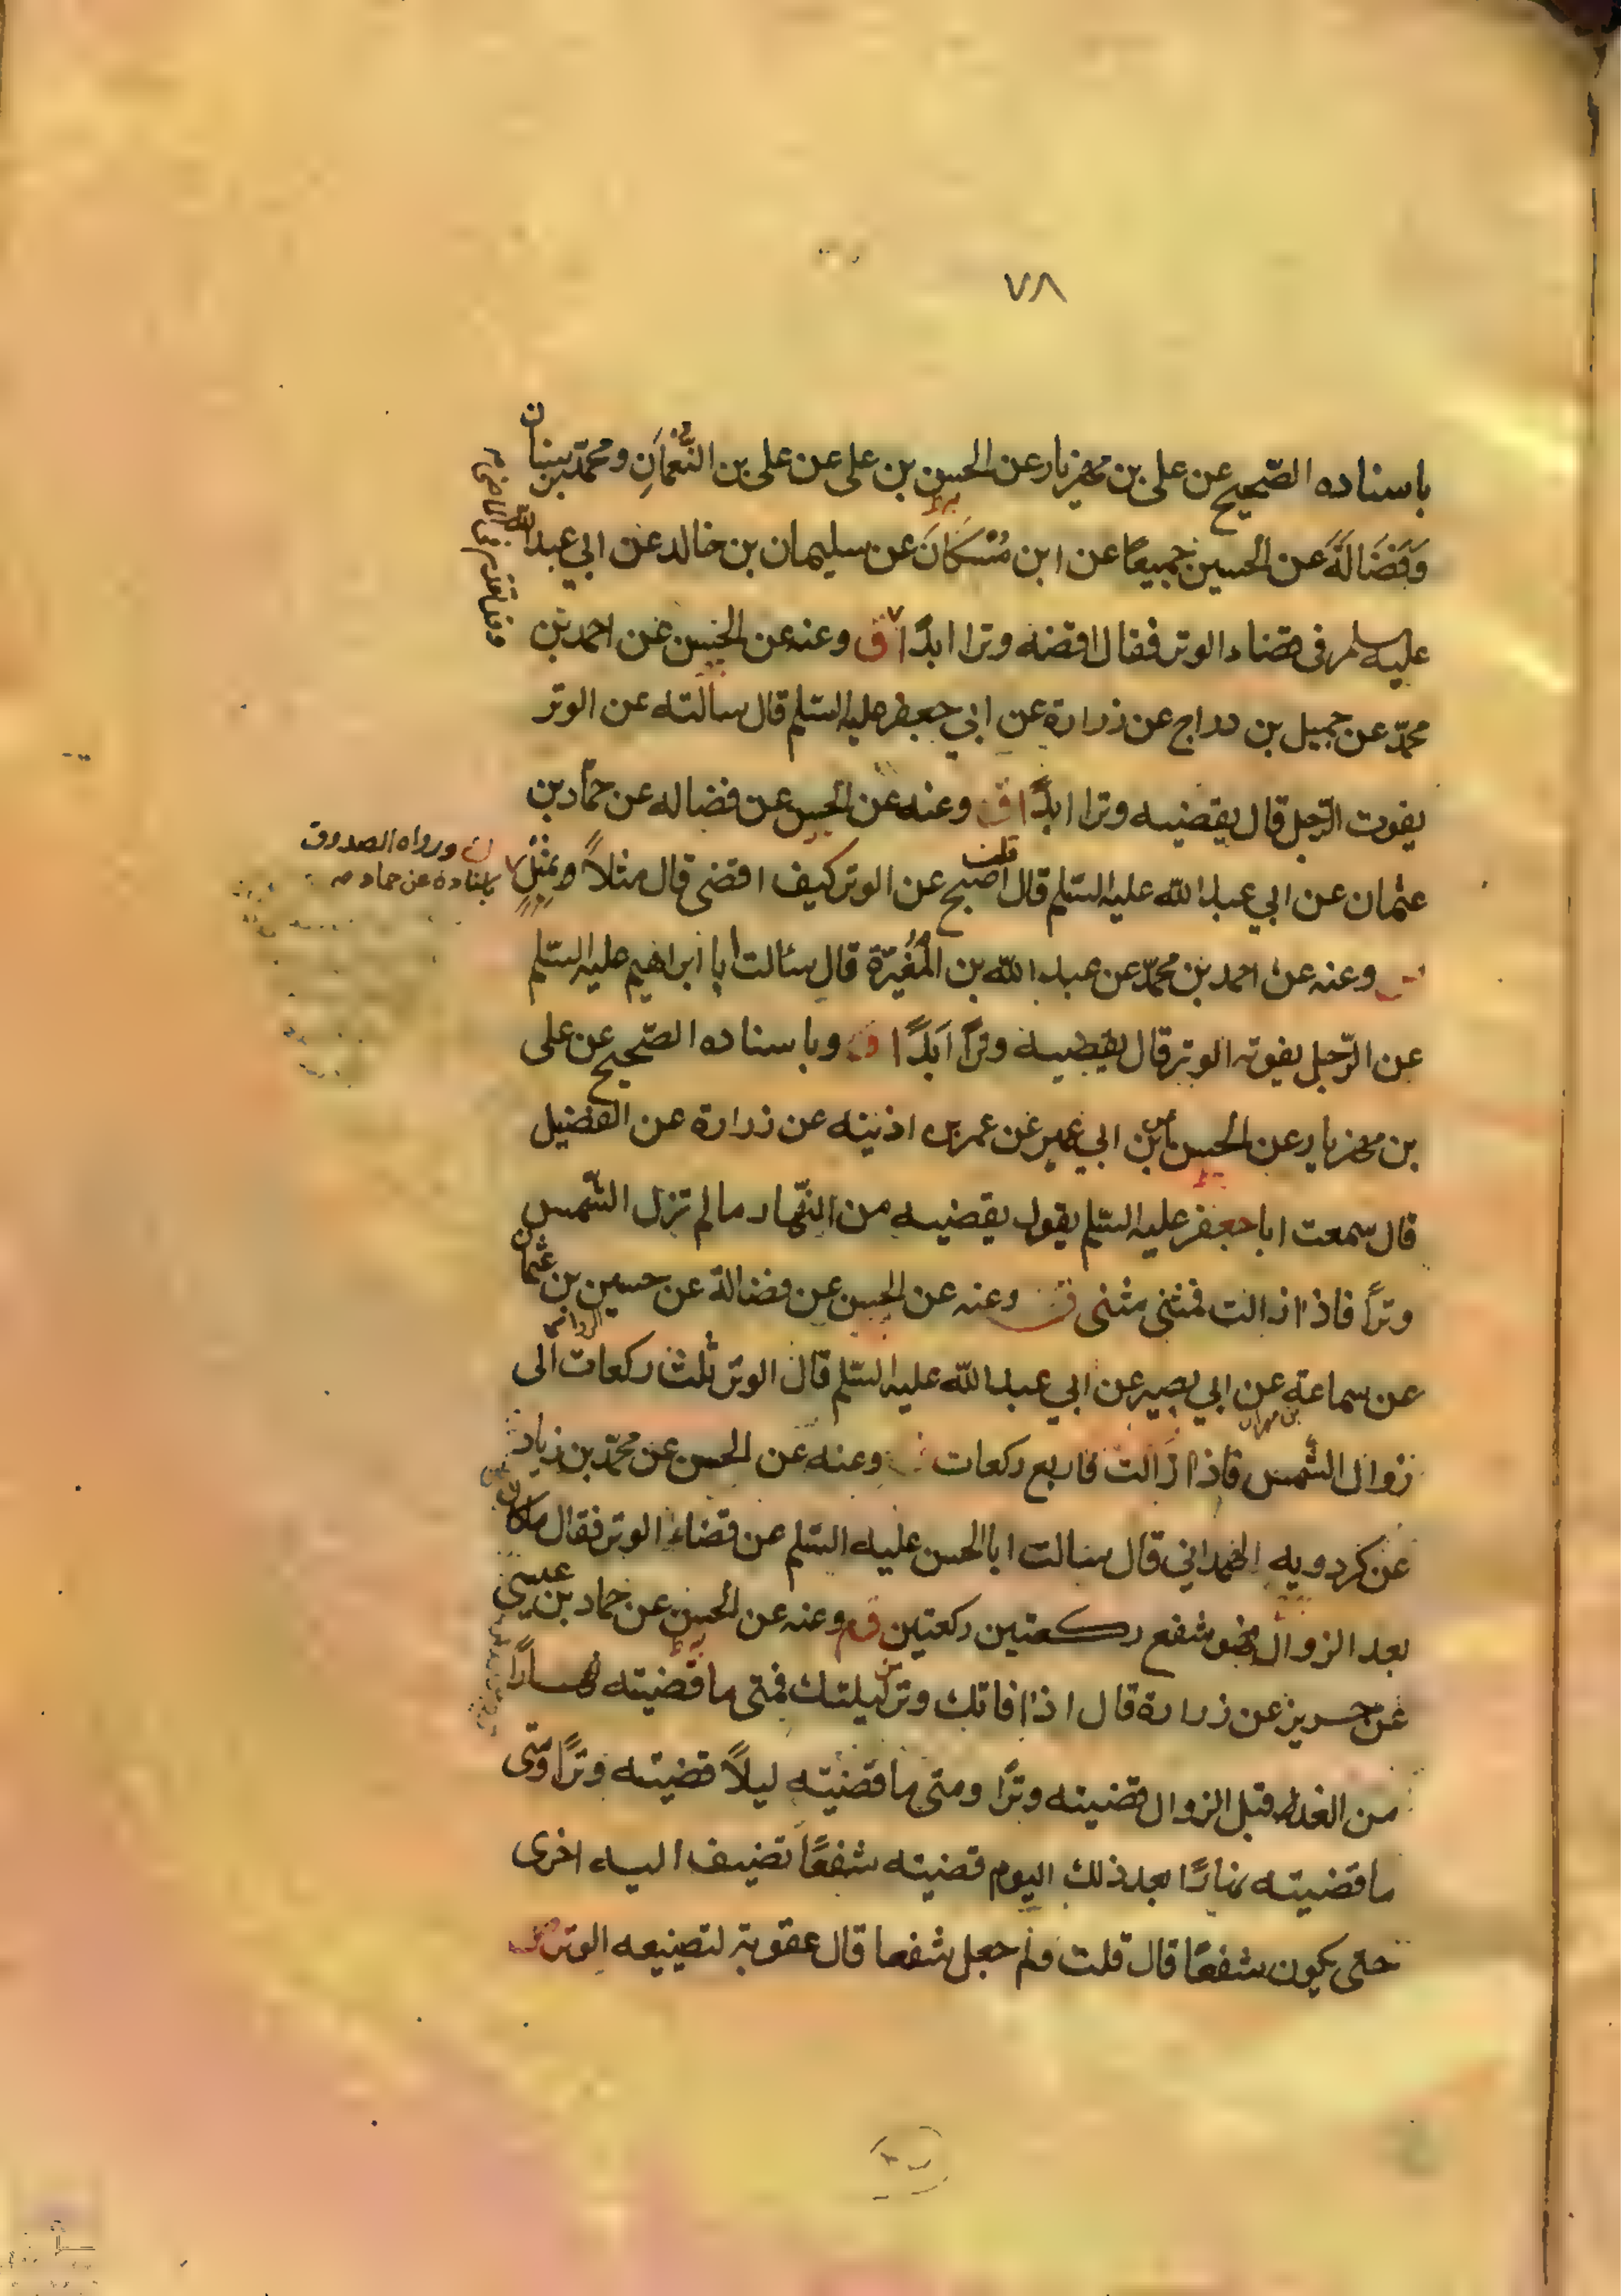 ٧٨
باسناده الصّحيح عن على بن مهزيار عن الحسن بن على عن على بن النّعمانِ ومحمّد بن سنان
وَفَضَالَةَ عن الحسين جميعًا عن ابن مُسْكَانَ عن سليمان بن خالد عن ابي عبد الله
عليه السلم فى قضاء الوتر فقال اقضه وترا ابدًا ق وعنه عن الحسن عن احمد بن
محمّد عن جميل بن دراج عن زرارة عن ابي جعفر عليه السّلم قال سالته عن الوتر
يفوت الرّجل قال يقضيه وترا ابدًا ق وعنه عن الحسن عن فضاله عن حمّاد بن
عثمان عن ابي عبد الله عليه السّلم قال قلت اصبح عن الوتر كيف اقضى قال مثلاً وبمثلٍ
ورواه الصدوق
باسناده عن حماد
وعنه عن احمد بن محمّد عن عبد الله بن المُغيَرة قال سئالت أبا ابراهيم عليه السلم
عن الرّجل يفوته الوتر قال يقضيه وترًا اَبَدًا ق وباسناده الصّحيح عن على
بن مهزيار عن الحسن عن ابن ابي عمير عن عمر بن اذنيه عن زرارة عن الفضيل
قال سمعت ابا جعفر عليه السّلم يقول يقضيه من النّهار ما لم تزل الشّمس
وترًا فاذا زالت فمثنى مثنى ق وعنه عن الحسن عن فضالة عن حسين بن عثمان
عن سماعة بن مهران عن ابي بصير عن ابي عبد الله عليه السّلم قال الوتر ثلث ركعات الى
زوال الشّمس فاذا زالت فاربع ركعات وعنه عن الحسن عن محمّد بن زياد
عن كردويه الهمداني قال سالت ابا الحسن عليه السّلم عن قضاء الوتر فقال ما كان
بعد الزوال فهو شفع ركعتين ركعتين ق م وعنه عن الحسن عن حماد بن عيسى
عن حريز عن زرارة قال اذا فاتك وتر من ليلتك فمتى ما قضيته نهارًا
من الغد قبل الزوال قضيته وترًا ومتى ما قضيته ليلاً قضيته وترًا ومتى
ما قضيته نهارًا بعد ذلك اليوم قضيته شفعًا تضيف اليه اخرى
حتى يكون شفعًا قال قلت ولم جعل شفعا قال عقوبة لتضييعه الوتر